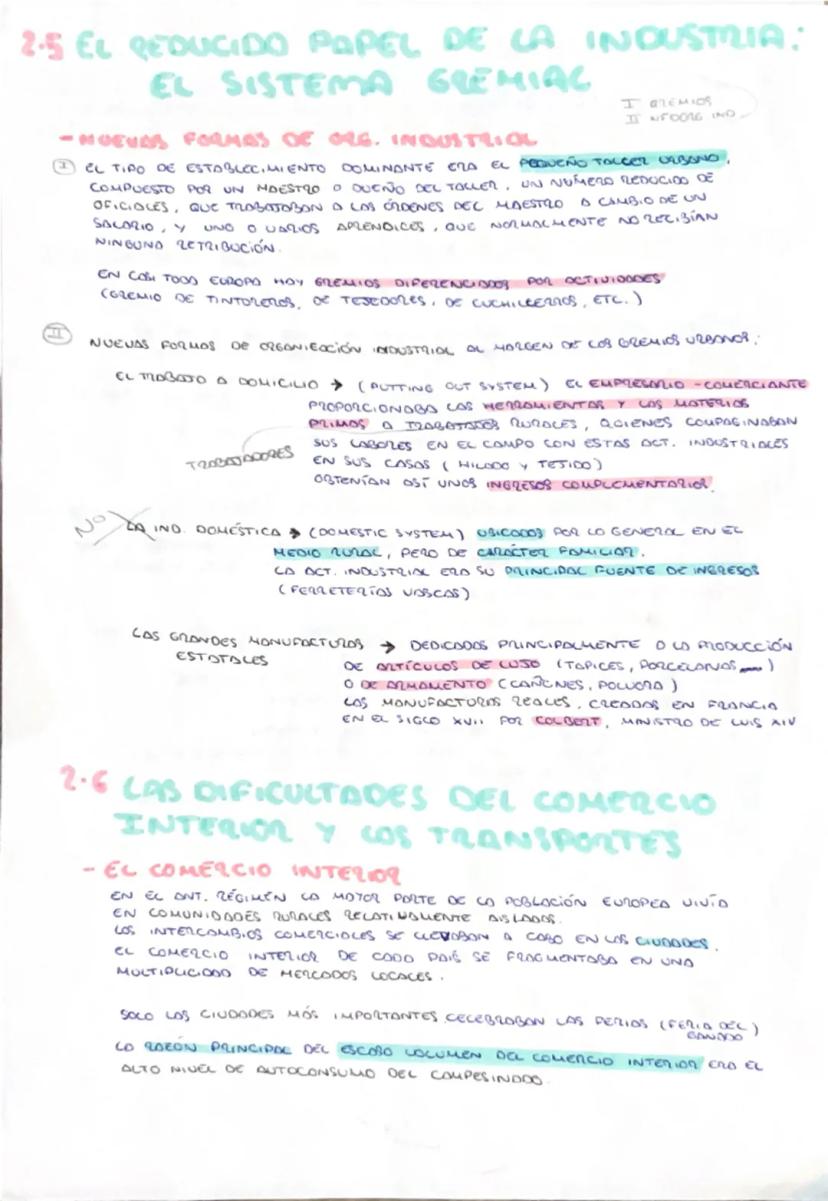 2.5 EL REDUCIDO PAPEL DE LA INDUSTRIA:
EL SISTEMA GREMIAL
I GREMIOS
II NFDORG IND
- NUEVAS FORMAS DE ORG. INDUSTRIAL
I EL TIPO DE ESTABLECIMIENTO DOMINANTE ERA EL PEQUEÑO TALLER URBANO,
COMPUESTO POR UN MAESTRO O DUEÑO DEL TALLER, UN NÚMERO REDUCIDO DE
OFICIALES, QUE TRABAJABAN A LAS ÓRDENES DEL MAESTRO A CAMBIO DE UN
SALARIO, Y UNO O VARIOS APRENDICES, QUE NORMALMENTE NO RECIBÍAN
NINGUNA RETRIBUCIÓN.
EN CASI TODA EUROPA HAY GREMIOS DIFERENCIADOS POR ACTIVIDADES
(GREMIO DE TINTOREROS, DE TEJEDORES, DE CUCHILLERROS, ETC.)
II NUEVAS FORMAS DE ORGANIZACIÓN INDUSTRIAL AL MARGEN DE LOS GREMIOS URBANOS:
EL TRABAJO A DOMICILIO → (PUTTING OUT SYSTEM) EL EMPRESARIO-COMERCIANTE
PROPORCIONABA LAS HERRAMIENTAS Y LAS MATERIAS
PRIMAS A TRABAJADORES RURALES, QUIENES COMPAGINABAN
SUS LABORES EN EL CAMPO CON ESTAS ACT. INDUSTRIALES
TRABAJADORES
EN SUS CASAS (HILADO Y TEJIDO)
OBTENÍAN ASÍ UNOS INGRESOS COMPLEMENTARIOS.
NO LA IND. DOMÉSTICA → (DOMESTIC SYSTEM) UBICADOS POR LO GENERAL EN EL
MEDIO RURAL, PERO DE CARÁCTER FAMILIAR.
LA ACT. INDUSTRIAL ERA SU PRINCIPAL FUENTE DE INGRESOS
(FERRETERÍAS VASCAS)
LAS GRANDES MANUFACTURAS → DEDICADAS PRINCIPALMENTE A LA PRODUCCIÓN
ESTATALES
DE ARTÍCULOS DE LUJO (TAPICES, PORCELANAS)
O DE ARMAMENTO (CAÑENES, POLVORA)
LAS MANUFACTURAS REALES, CREADAS EN FRANCIA
EN EL SIGLO XVII POR COLBERT, MINISTRO DE LUIS XIV
2.6 LAS DIFICULTADES DEL COMERCIO
INTERIOR Y LOS TRANSPORTES
- EL COMERCIO INTERIOR
EN EL ANT. RÉGIMEN LA MAYOR PARTE DE LA POBLACIÓN EUROPEA VIVÍA
EN COMUNIDADES RURALES RELATIVAMENTE AISLADAS.
LOS INTERCAMBIOS COMERCIALES SE LLEVABAN A CABO EN LAS CIUDADES.
EL COMERCIO INTERIOR DE CADA PAÍS SE FRAGMENTABA EN UNA
MULTIPLICIDAD DE MERCADOS LOCALES.
SOLO LAS CIUDADES MÁS IMPORTANTES CELEBRABAN LAS FERIAS (FERIA DEL)
GANADO
LA RAZÓN PRINCIPAL DEL ESCASO VOLUMEN DEL COMERCIO INTERIOR ERA EL
ALTO NIVEL DE AUTOCONSUMO DEL CAMPESINADO.